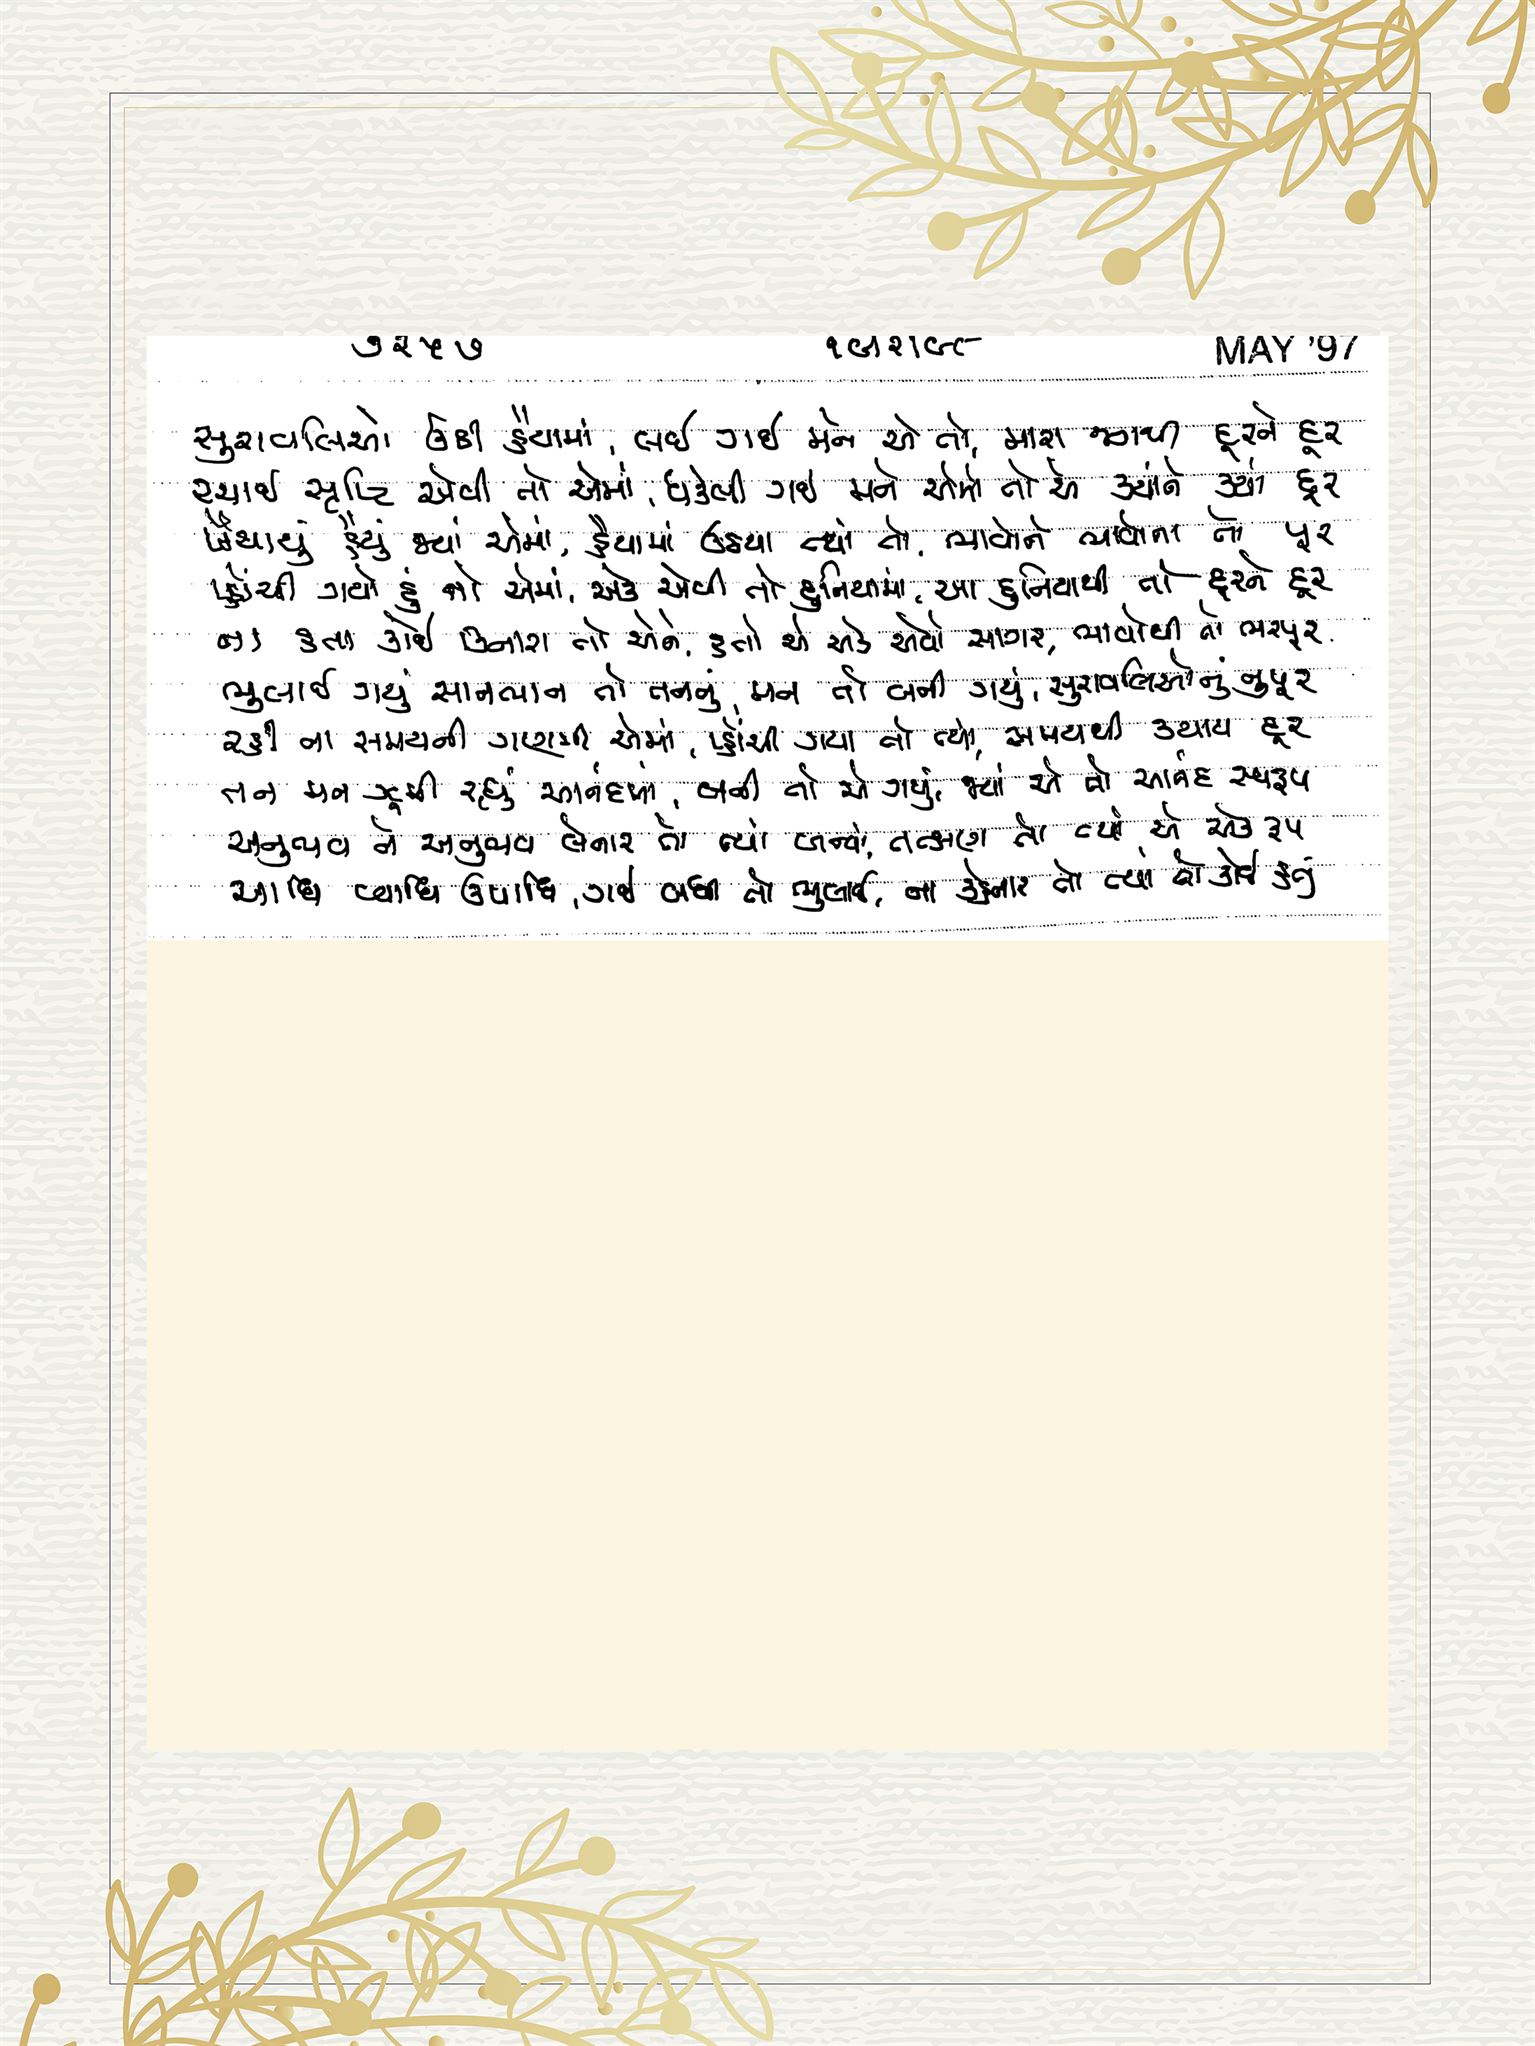 ૭૨૫૭ MAY '97
સુરાવલિઓ ઉઠી હૈયામાં, લઈ ગઈ મને એ તો, મારા જગથી દૂરને દૂર
રચાઈ સૃષ્ટિ એવી તો એમાં, ધકેલી ગઈ મને એમાં તો એ ક્યાંને ક્યાં દૂર
ખેંચાયું હૈયું જ્યાં એમાં, હૈયામાં ઉઠયા ત્યાં તો, ભાવોને ભાવોના તો પૂર
પ્હોંચી ગયો હું તો એમાં, એક એવી તો દુનિયામાં, આ દુનિયાથી તો દૂરને દૂર
ના હતા કોઈ કિનારા તો એને, હતો એ એક એવો સાગર, ભાવોથી તો ભરપૂર.
ભુલાઈ ગયું સાનભાન તો તનનું, મન તો બની ગયું, સુરાવલિઓનું નુપૂર
રહી ના સમયની ગણત્રી એમાં, પ્હોંચી ગયા તો ત્યાં, સમયથી ક્યાંય દૂર
તન મન ઝૂમી રહ્યું આનંદમાં, બની તો એ ગયું, જ્યાં એ તો આનંદ સ્વરૂપ
અનુભવ ને અનુભવ લેનાર તો ત્યાં બન્યાં, તત્ક્ષણ તો ત્યાં એ એક રૂપ
આધિ વ્યાધિ ઉપાધિ, ગઈ બધી તો ભુલાઈ, ના કહેનાર તો ત્યાં તો કોઈ હતું